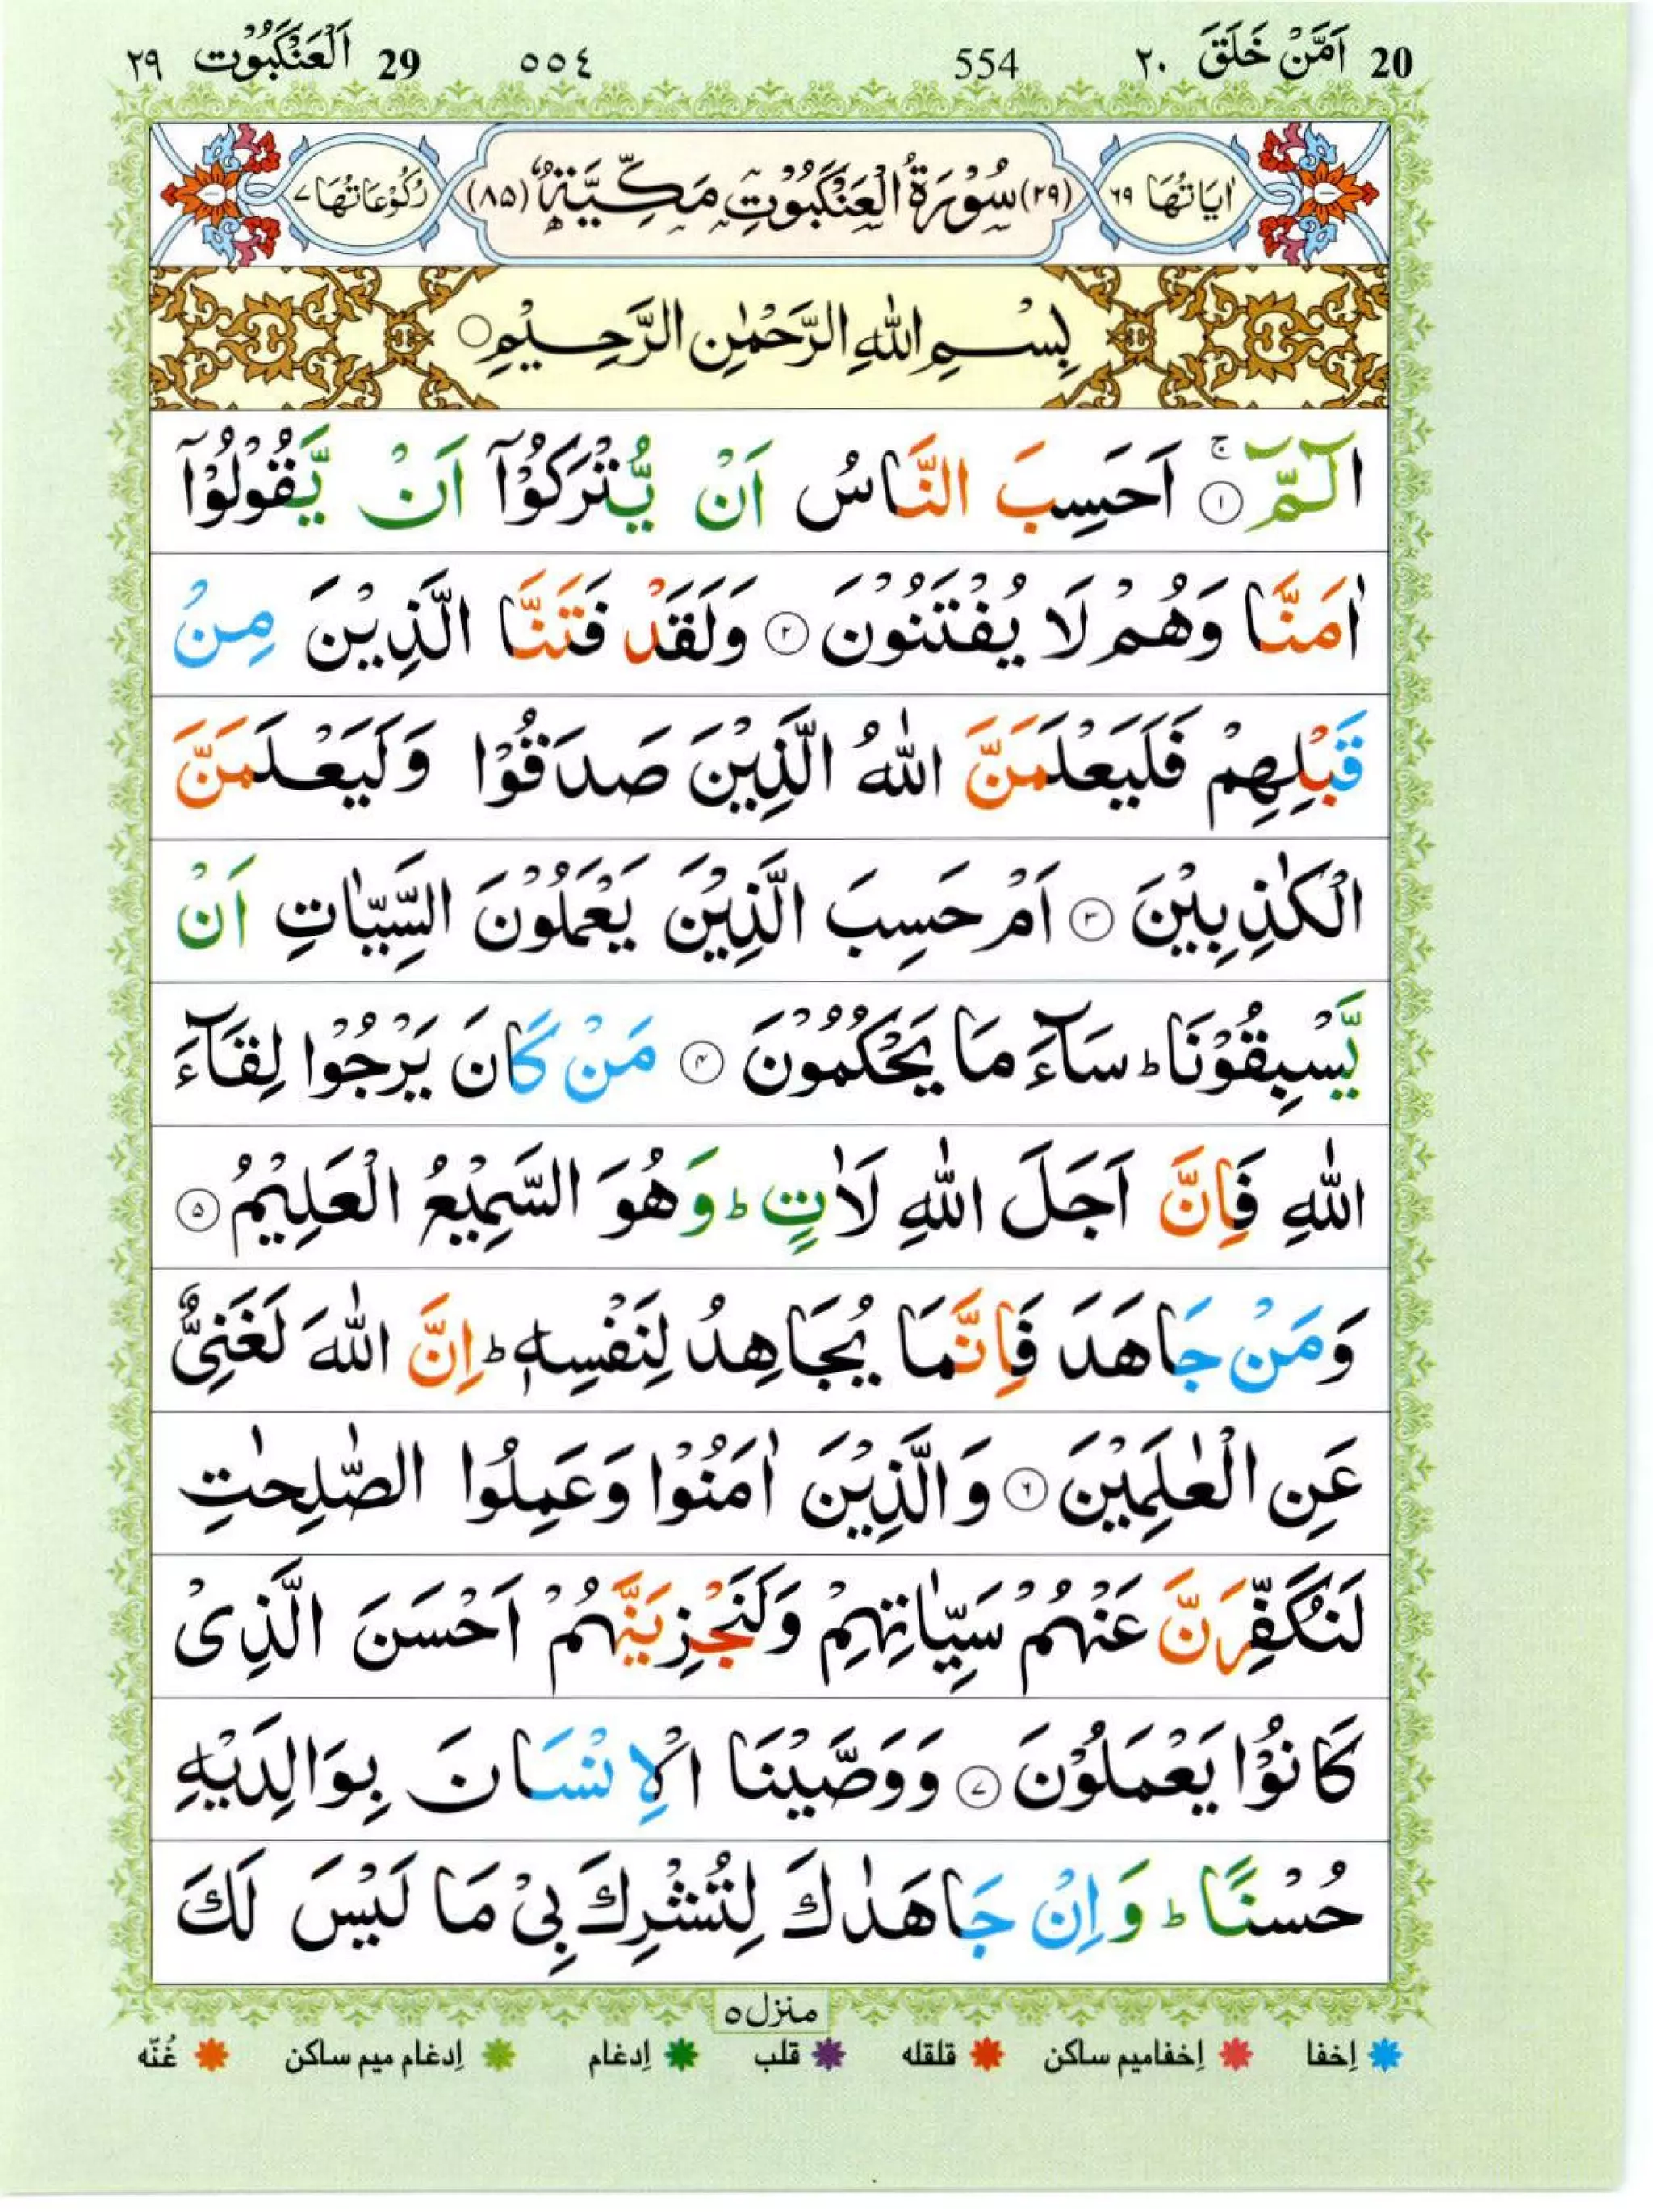 20 اَمَّنْ خَلَقَ ٢٠ 554 ٥٥٤ 29 اَلْعَنْكَبُوْت ٢٩
اٰيَاتُهَا ٦٩ (٢٩) سُوْرَةُ الْعَنْكَبُوْتِ مَكِّيَّةٌ (٨٥) رُكُوْعَاتُهَا ٧
بِسْمِ اللّٰهِ الرَّحْمٰنِ الرَّحِيْمِ
الٓمّٓ ۚ ١ اَحَسِبَ النَّاسُ اَنْ يُّتْرَكُوْٓا اَنْ يَّقُوْلُوْٓا
اٰمَنَّا وَهُمْ لَا يُفْتَنُوْنَ ٢ وَلَقَدْ فَتَنَّا الَّذِيْنَ مِنْ
قَبْلِهِمْ فَلَيَعْلَمَنَّ اللّٰهُ الَّذِيْنَ صَدَقُوْا وَلَيَعْلَمَنَّ
الْكٰذِبِيْنَ ٣ اَمْ حَسِبَ الَّذِيْنَ يَعْمَلُوْنَ السَّيِّاٰتِ اَنْ
يَّسْبِقُوْنَا ؕ سَآءَ مَا يَحْكُمُوْنَ ٤ مَنْ كَانَ يَرْجُوْا لِقَآءَ
اللّٰهِ فَاِنَّ اَجَلَ اللّٰهِ لَاٰتٍ ؕ وَهُوَ السَّمِيْعُ الْعَلِيْمُ ٥
وَمَنْ جَاهَدَ فَاِنَّمَا يُجَاهِدُ لِنَفْسِهٖ ؕ اِنَّ اللّٰهَ لَغَنِىٌّ
عَنِ الْعٰلَمِيْنَ ٦ وَالَّذِيْنَ اٰمَنُوْا وَعَمِلُوا الصّٰلِحٰتِ
لَنُكَفِّرَنَّ عَنْهُمْ سَيِّاٰتِهِمْ وَلَنَجْزِيَنَّهُمْ اَحْسَنَ الَّذِىْ
كَانُوْا يَعْمَلُوْنَ ٧ وَوَصَّيْنَا الْاِنْسَانَ بِوَالِدَيْهِ
حُسْنًا ؕ وَاِنْ جَاهَدٰكَ لِتُشْرِكَ بِىْ مَا لَيْسَ لَكَ
منزل ٥
اِخفا اِخفامیم ساکن قلقله قلب اِدغام اِدغام میم ساکن غُنّه